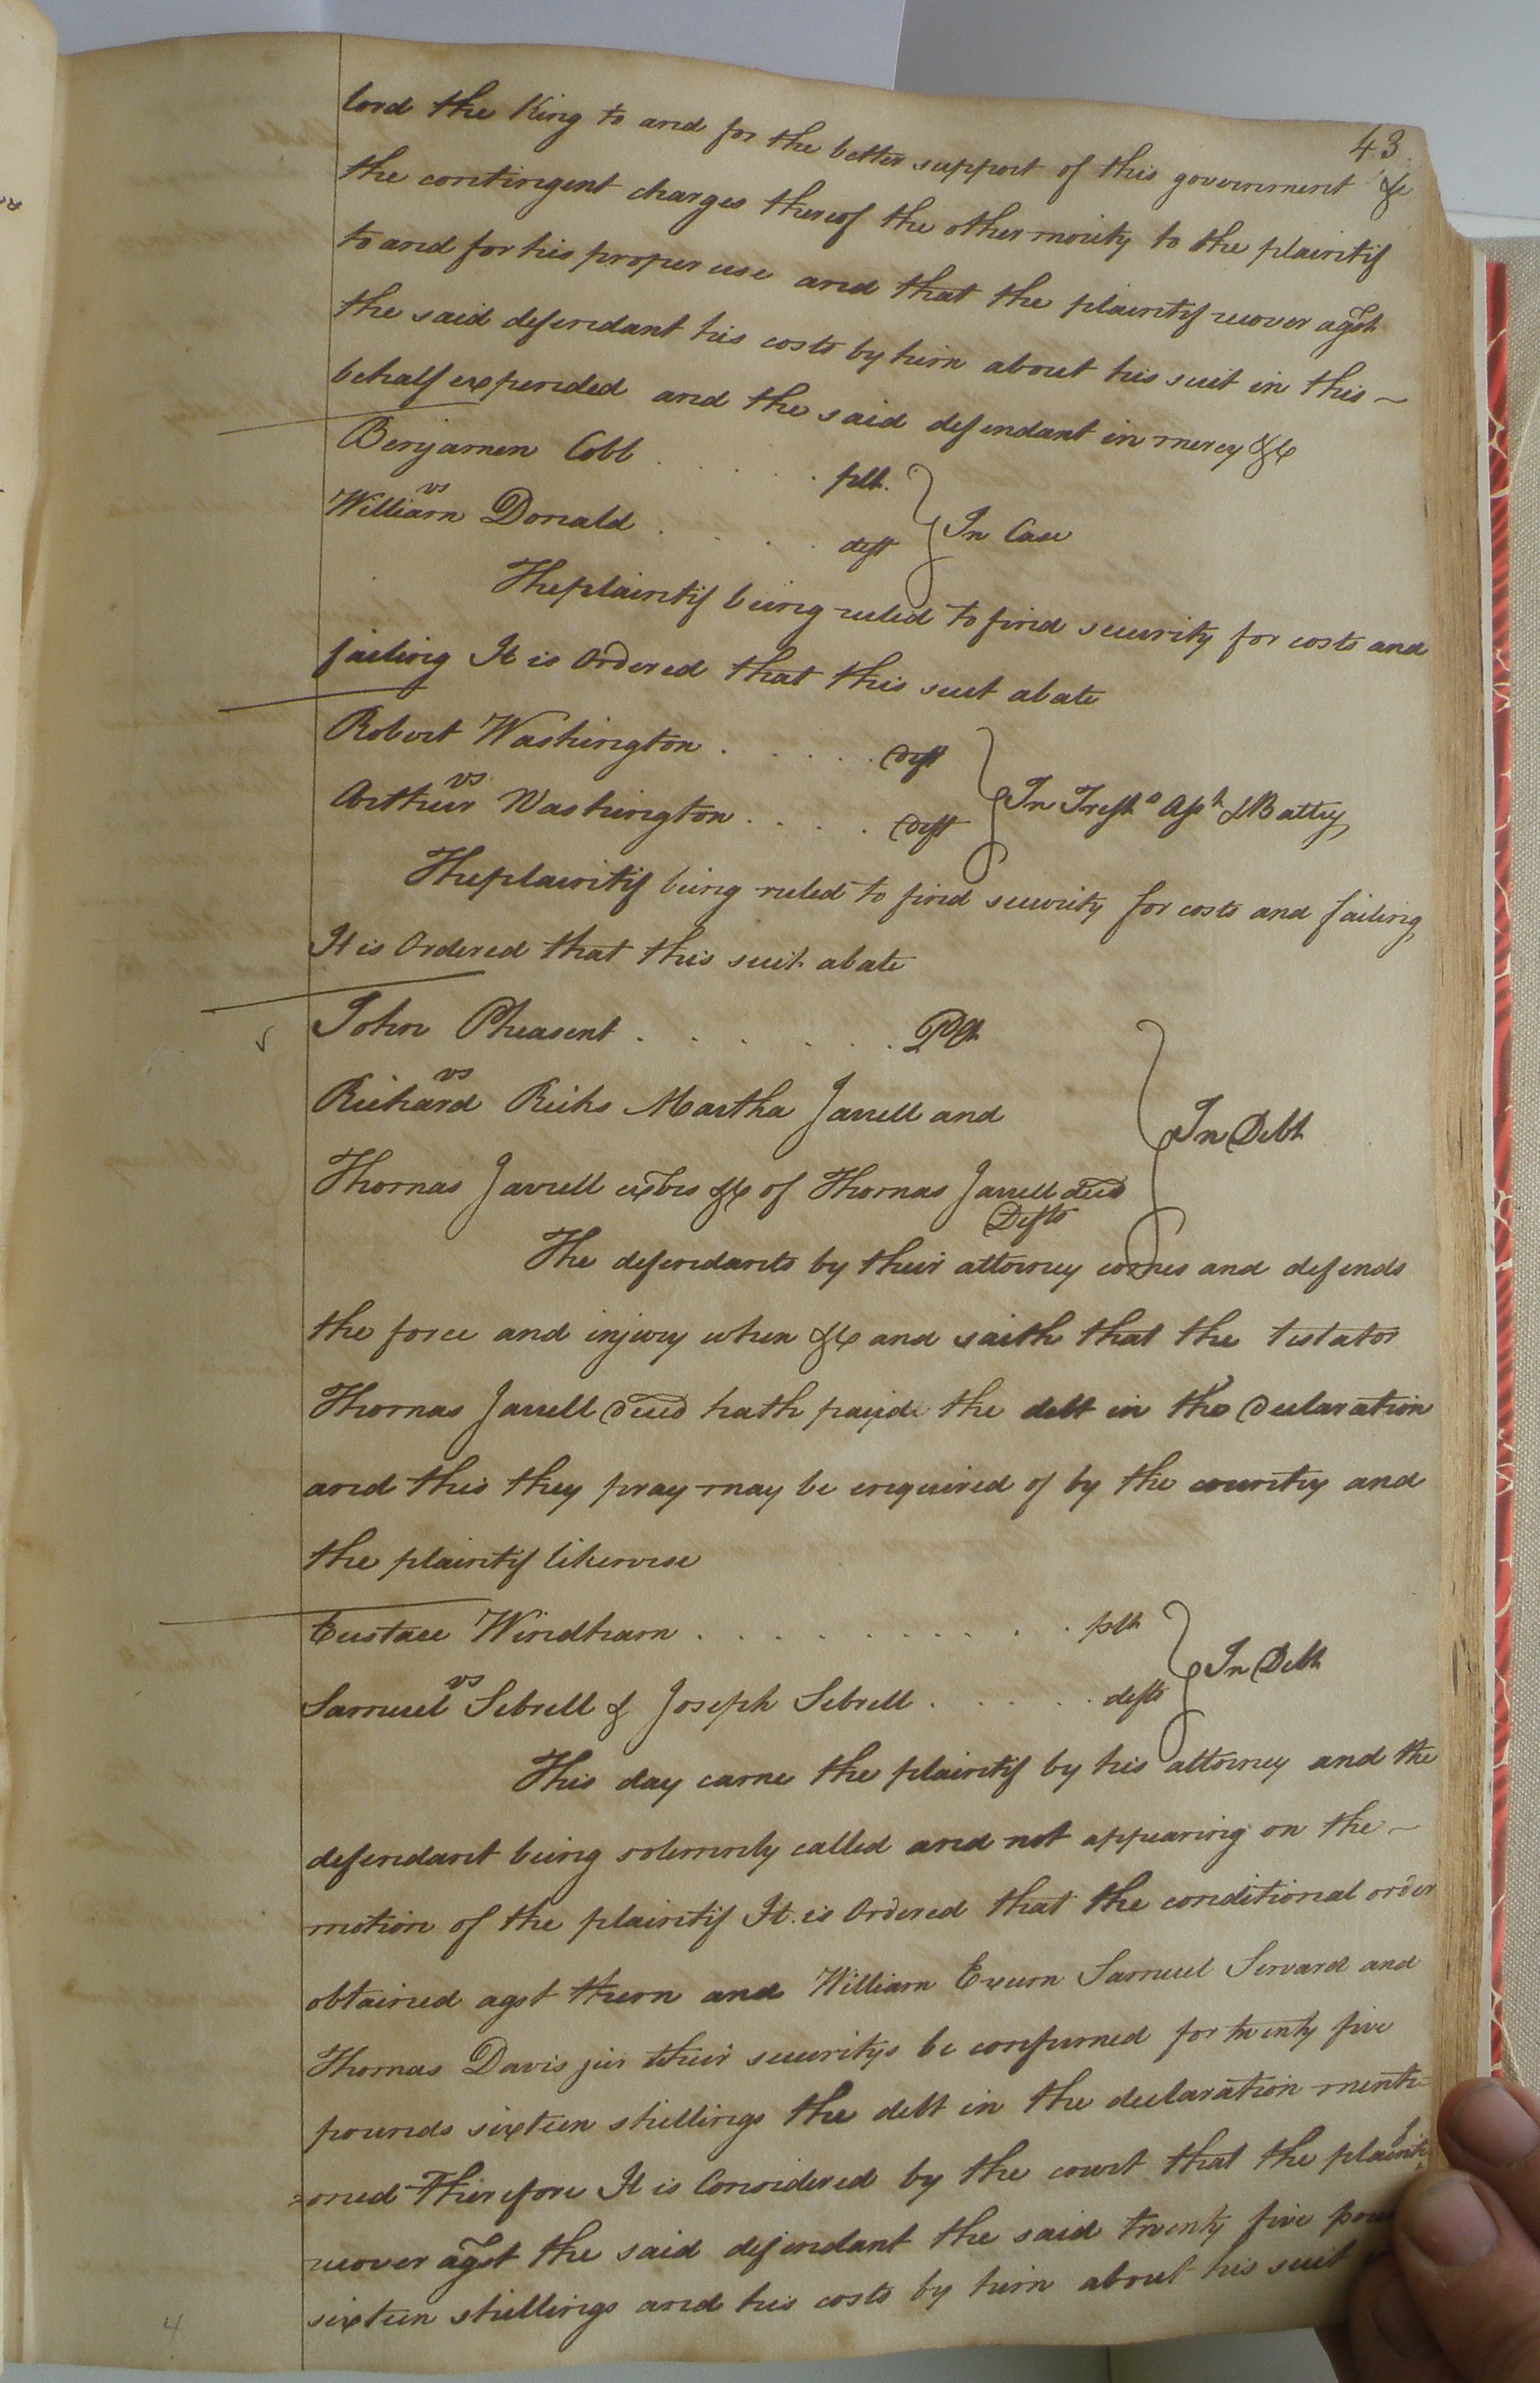 43
lord the King to and for the better support of this government &c
the contingent charges thereof the other moiety to the plaintif
to and for his proper use and that the plaintif recover agst
the said defendant his costs by him about his suit in this ~
behalf expended and the said defendant in mercy &c
Benjamen Cobb . . . . . plt.
vs
William Donald . . . . deft
In Case
The plaintif being ruled to find security for costs and
failing It is Ordered that this suit abate
Robert Washington . . . . . Deft
vs
Arthur Washington . . . . Deft
In Tresps Ast & Battry
The plaintif being ruled to find security for costs and failing
It is Ordered that this suit abate
John Pheasent . . . . . . Plt
vs
Richard Ricks Martha Jarrell and
In Debt
Thomas Jarrell exors &c of Thomas Jarrell decd
Defts
The defendants by their attorney comes and defends
the force and injury when &c and saith that the testator
Thomas Jarrell Decd hath payde the debt in the Declaration
and this they pray may be enquired of by the country and
the plaintif likewise
Eustace Windham . . . . . . . . . plt
vs
Samuel Sebrell & Joseph Sebrell . . . . . defts
In Debt
This day came the plaintif by his attorney and the
defendant being solemnly called and not appearing on the ~
motion of the plaintif It is Ordered that the conditional order
obtained agst them and William Exum Samuel Servard and
Thomas Davis jur their securitys be confirmed for twenty five
pounds sixteen shillings the debt in the declaration menti=
=oned Therefore It is Considered by the court that the plaintif
recover agst the said defendant the said twenty five
sixteen shillings and his costs by him about his suit
4